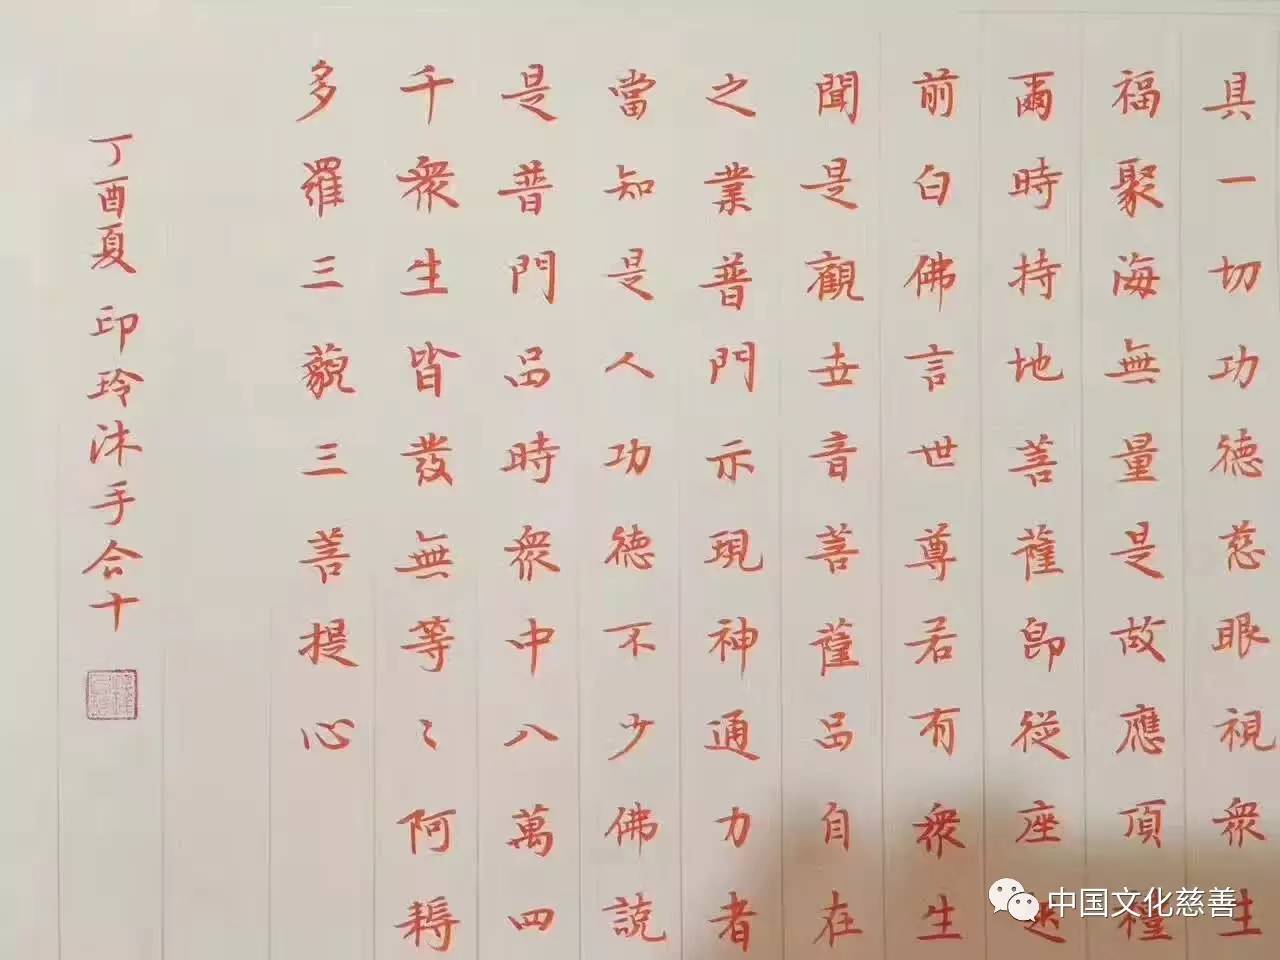 具一切功德慈眼視衆生
福聚海無量是故應頂
爾時持地菩薩即從座
前白佛言世尊若有衆生
聞是觀世音菩薩品自在
之業普門示現神通力者
當知是人功德不少佛説
是普門品時衆中八萬四
千衆生皆發無等〻阿耨
多羅三藐三菩提心
丁酉夏 印玲沐手合十
中国文化慈善